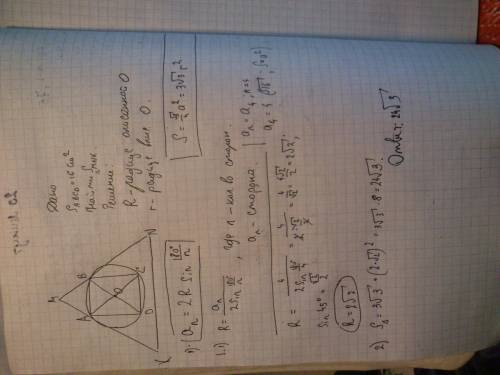 Дано
S ABCD = 16 см²
Найти: S MNK
Решение:
R - радиус описанного O
r - радиус впис. O.
M
A
B
O
D
C
K
N
1) aₙ = 2R sin 180°/n
S = √3/4 a² = 3√3 r²
1.1) R = aₙ / 2 sin 180°/n, где n - кол. в сторон.
aₙ - сторона.
aₙ = a₄, n = 4
a₄ = 4 (√16, S = a²)
R = 4 / 2 sin 180/4 = 4 / 2 · √2/2 = 4/√2 = 4√2/2 = 2√2;
sin 45° = √2/2
R = 2√2
2) S△ = 3√3 · (2·√2)² = 3√3 · 8 = 24√3
Ответ: 24√3